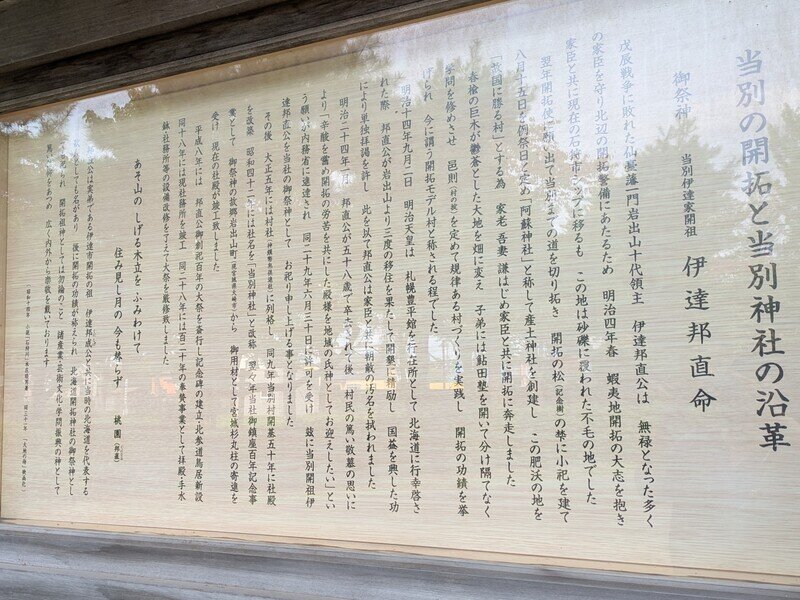 当別の開拓と当別神社の沿革
御祭神 当別伊達家開祖 伊達邦直命
戊辰戦争に敗れた仙臺藩一門岩出山十代領主 伊達邦直公は 無禄となった多く
の家臣を守り北辺の開拓警備にあたるため 明治四年春 蝦夷地開拓の大志を抱き
家臣と共に現在の石狩市 シップに移るも この地は砂礫に覆われた不毛の地でした
翌年開拓使に願い出て当別までの道を切り拓き 開拓の松(記念樹)の埜に小祀を建て
八月十五日を例祭日と定め「阿蘇神社」と称して産土神社を創建し この肥沃の地を
「故国に勝る村」とする為 家老 吾妻 謙はじめ家臣と共に開拓に奔走しました
春楡の巨木が鬱蒼とした大地を畑に変え 子弟には鮎田塾を開いて分け隔てなく
学問を修めさせ 邑則(村の掟)を定めて規律ある村づくりを実践し 開拓の功績を挙
げられ 今に謂う開拓モデル村と称される程でした
明治十四年九月二日 明治天皇は 札幌豊平館を行在所として 北海道に行幸啓さ
れた際 邦直公が岩出山より三度の移住を果たして開墾に精励し 国益を興した功
により単独拝謁を許し 此を以て邦直公は家臣と共に朝敵の汚名を拭われました
明治二十四年一月 邦直公が五十八歳で卒去されて後 村民の篤い敬慕の思いに
より「辛酸を嘗め開拓の労苦を共にした殿様を地域の氏神としてお迎えしたい」とい
う願いが内務省に進達され 同二十九年六月三十日に許可を受け 茲に当別開祖伊
達邦直公を当社の御祭神として お祀り申し上げる事となりました
その後 大正五年には村社(神饌幣帛供進社)に列格し 同九年当別村開基五十年に社殿
を改築 昭和四十二年には社名を「当別神社」と改称 翌々年当社御鎮座百年記念事
業として 御祭神の故郷岩出山町(現宮城県大崎市)から 御用材として宮城杉丸柱の寄進を
受け 現在の社殿が竣工致しました
平成八年には 邦直公御創祀百年の大祭を斎行し記念碑の建立・北参道鳥居新設
同十八年には現社務所を竣工 同二十八年には百二十年の奉賛事業として拝殿・手水
鉢・社務所等の設備改修を了えて大祭を厳修致しました
あそ山の しげる木立を ふみわけて
住み見し月の 今も殊らず 桃園(邦直)
公は実弟である伊達市開拓の祖 伊達邦成公と共に当時の北海道を代表する
としても名があり 後に開拓の功績が称えられ 北海道開拓神社の御祭神とし
られ 開拓祖神としては勿論のこと 諸産業・芸術文化・学問振興の神として
篤い信仰をあつめ 広く内外から崇敬を戴いております